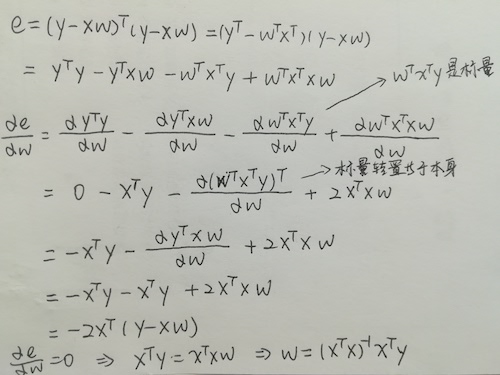 e = (y-xw)ᵀ(y-xw) = (yᵀ-wᵀxᵀ)(y-xw)
= yᵀy - yᵀxw - wᵀxᵀy + wᵀxᵀxw
wᵀxᵀy是标量
de/dw = dyᵀy/dw - dyᵀxw/dw - dwᵀxᵀy/dw + dwᵀxᵀxw/dw
= 0 - xᵀy - d(wᵀxᵀy)ᵀ/dw + 2xᵀxw
标量转置等于本身
= -xᵀy - dyᵀxw/dw + 2xᵀxw
= -xᵀy - xᵀy + 2xᵀxw
= -2xᵀ(y-xw)
de/dw = 0 ⇒ xᵀy = xᵀxw ⇒ w = (xᵀx)⁻¹xᵀy